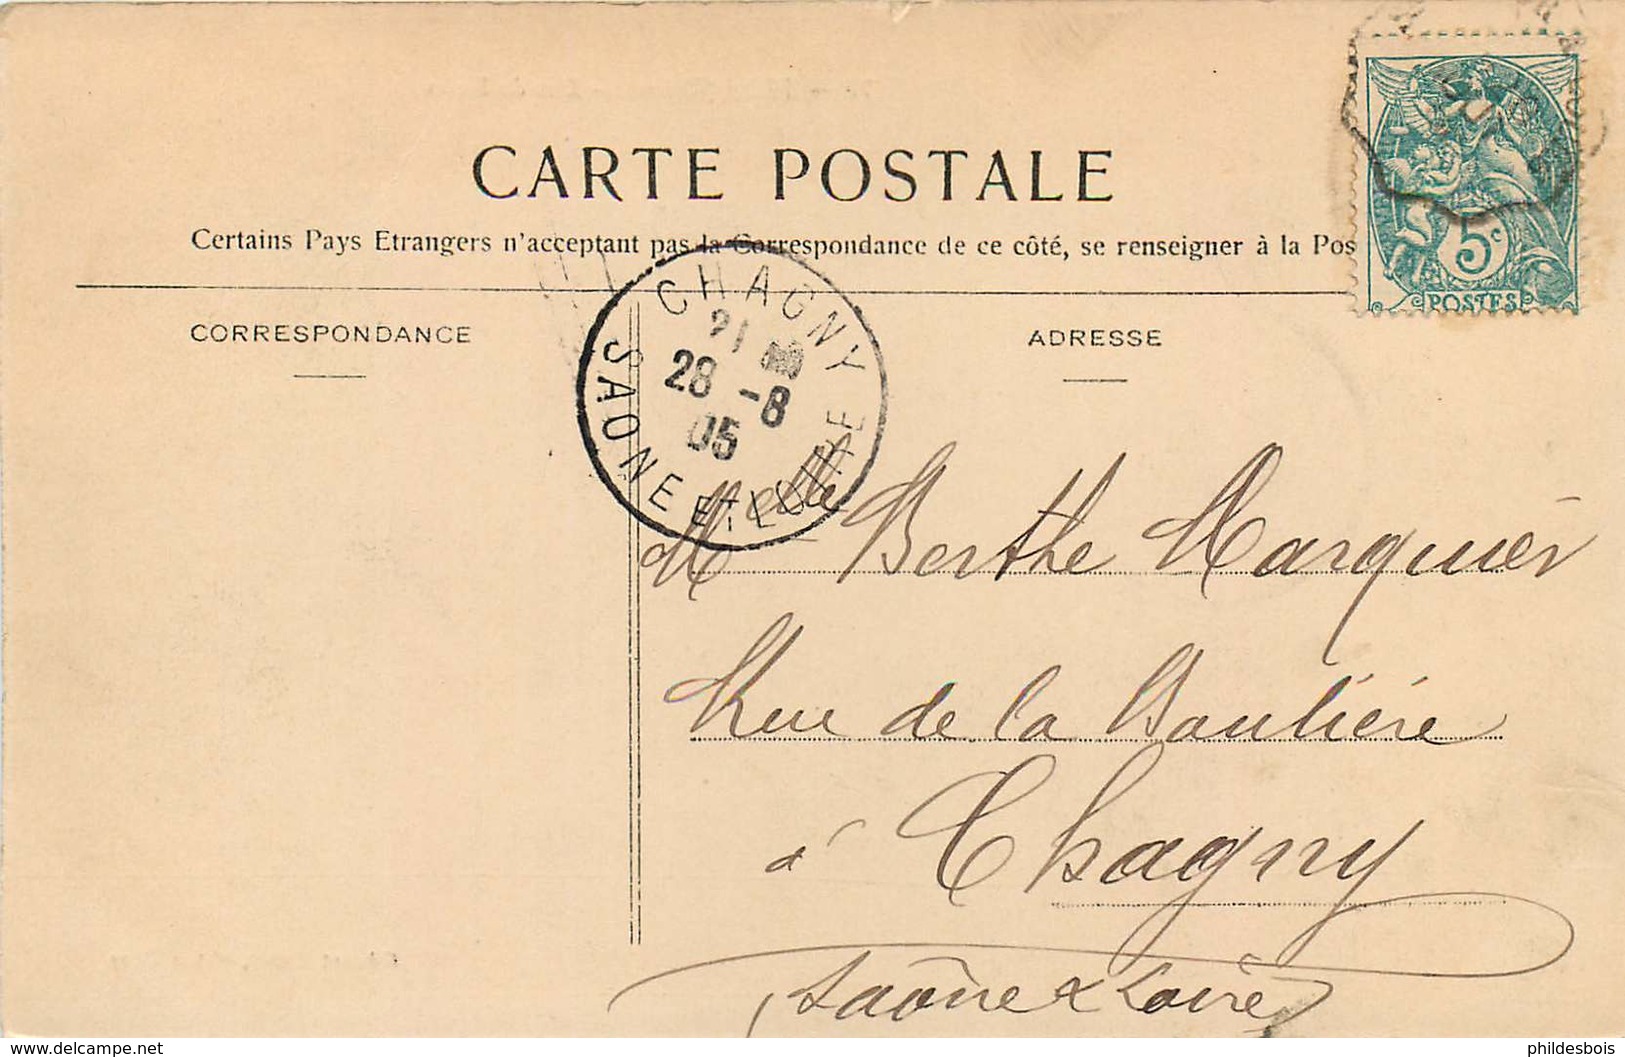 CARTE POSTALE
Certains Pays Etrangers n'acceptant pas la Correspondance de ce côté, se renseigner à la Pos
CORRESPONDANCE
ADRESSE
5c
POSTES
CHAGNY
28 -8
05
SAONE ET LOIRE
Melle Berthe Marquier
Rue de la
à Chagny
Saône & Loire
delcampe.net
phildesbois